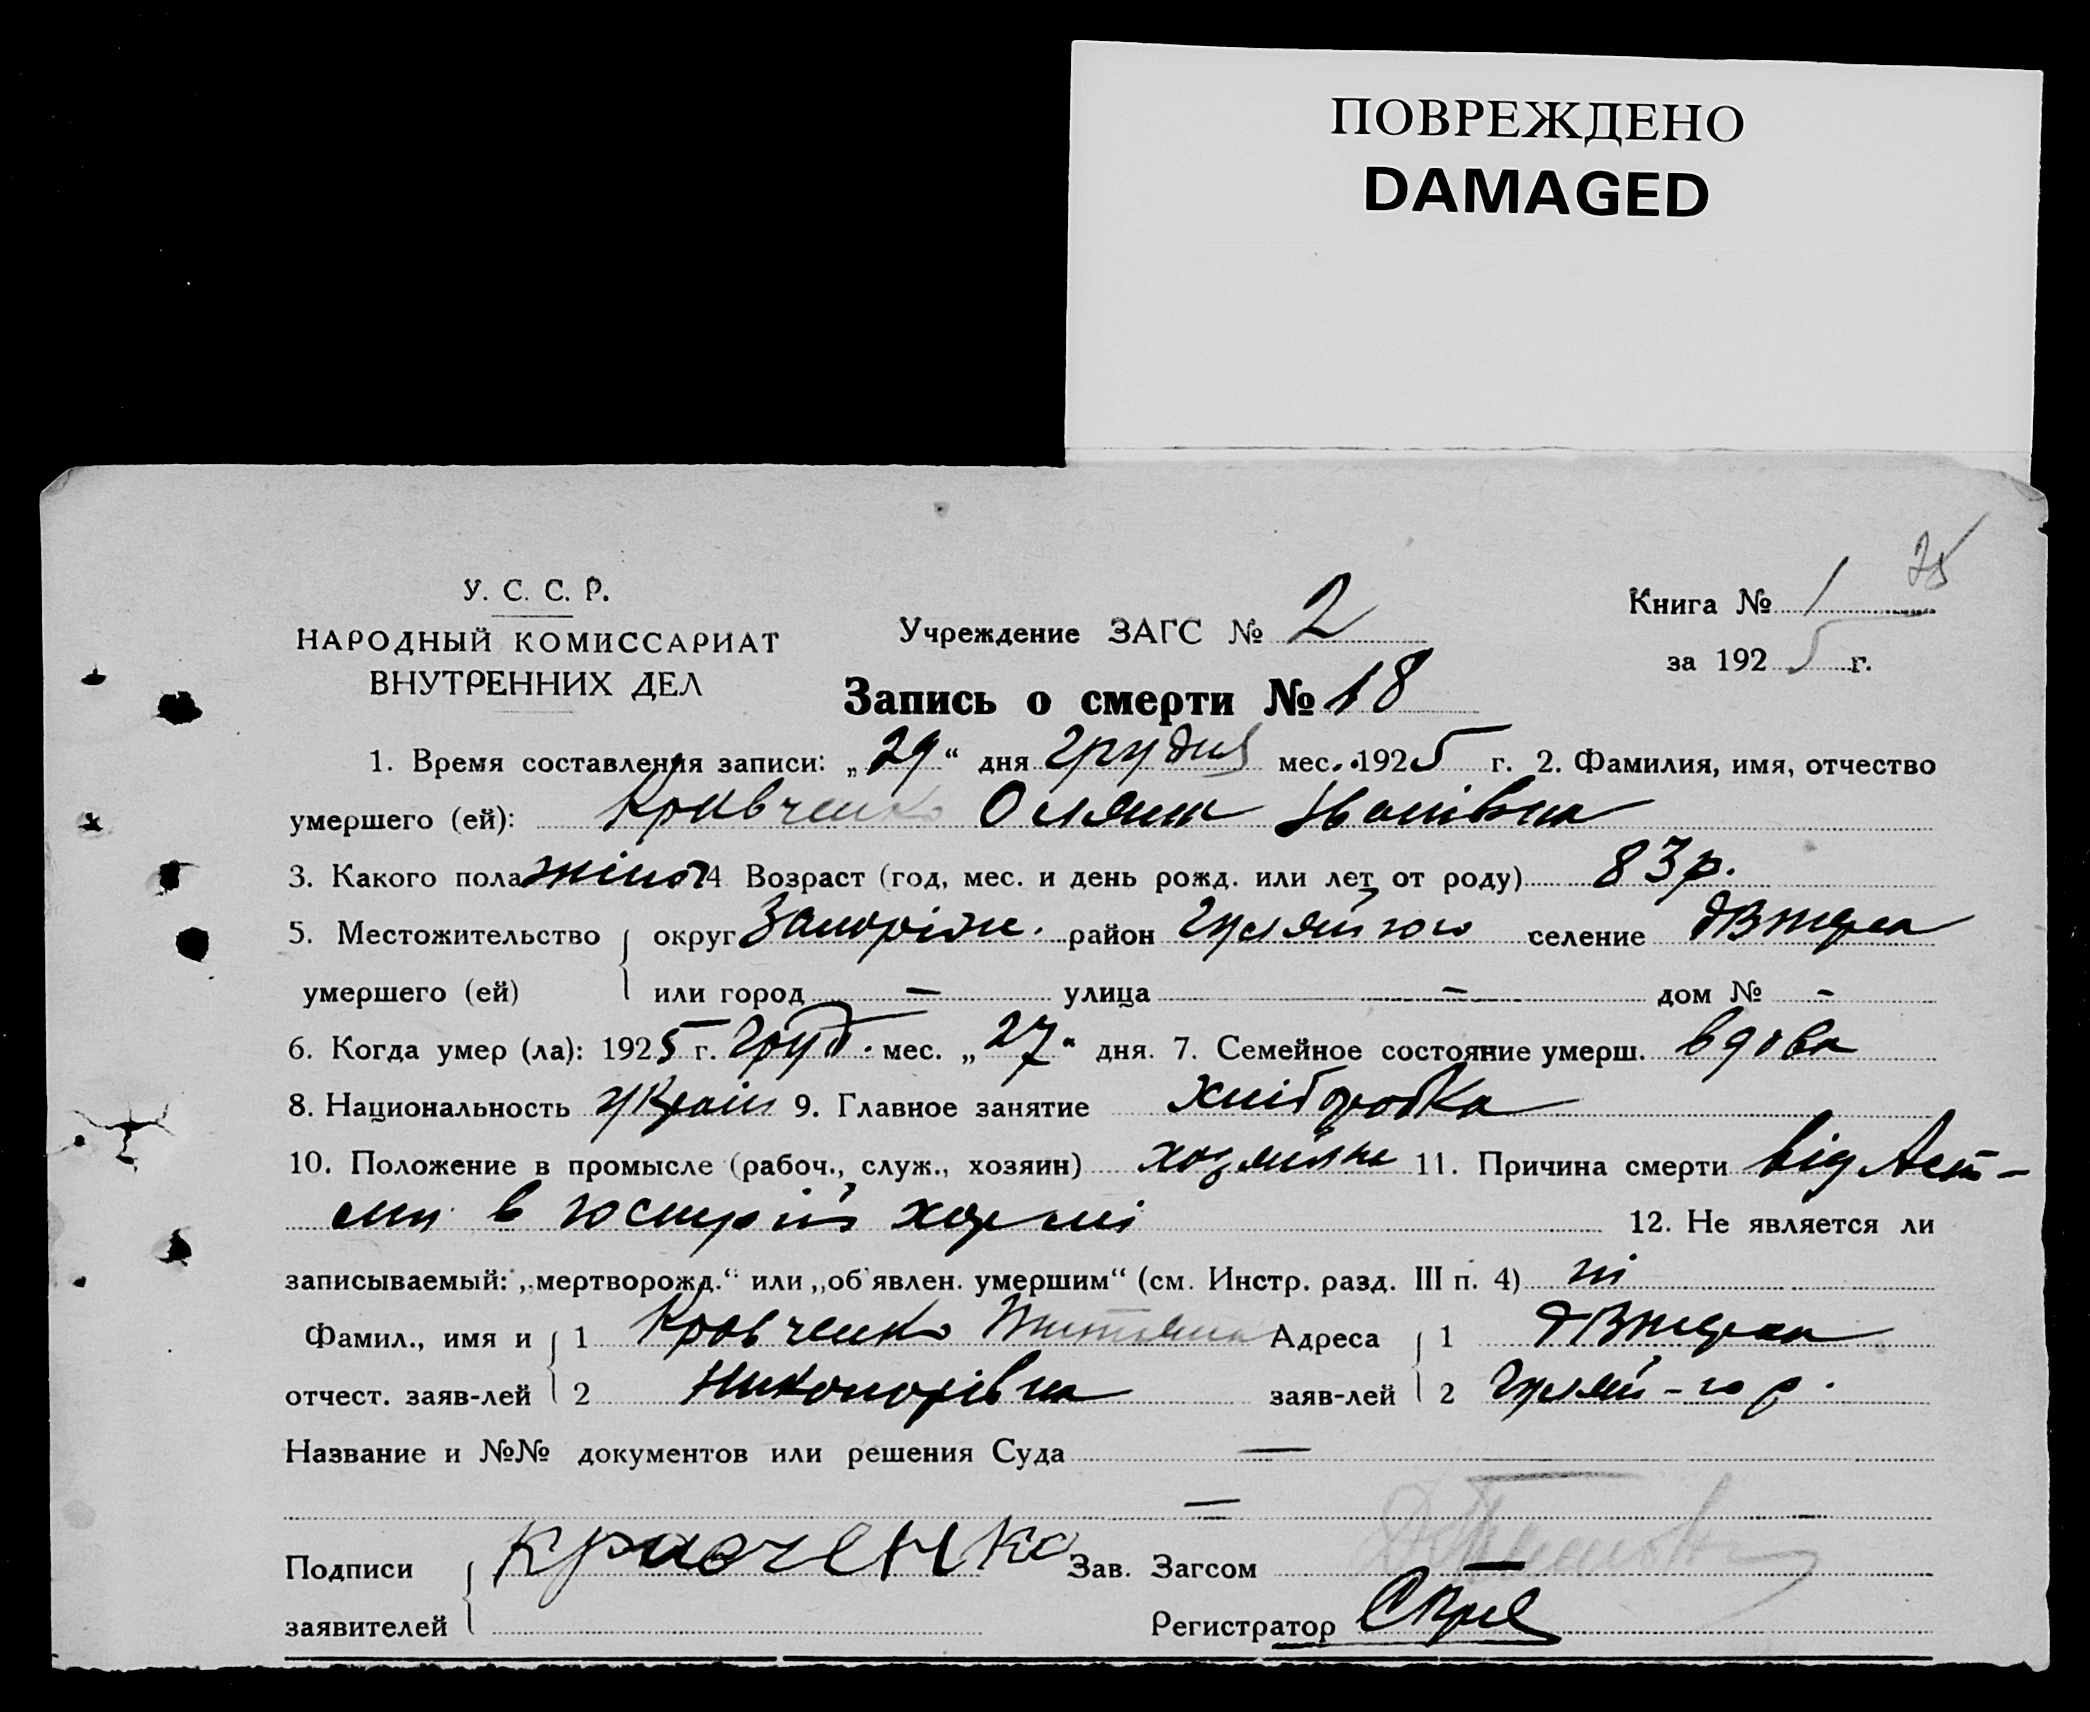 ПОВРЕЖДЕНО
DAMAGED
У. С. С. Р.
НАРОДНЫЙ КОМИССАРИАТ
ВНУТРЕННИХ ДЕЛ
Учреждение ЗАГС № 2
Книга № 1
за 1925 г.
Запись о смерти № 18
1. Время составления записи: „29“ дня Грудня мес. 1925 г. 2. Фамилия, имя, отчество
умершего (ей): Кравченко Оляна Іванівна
3. Какого пола жіноч 4 Возраст (год, мес. и день рожд. или лет от роду) 83 р.
5. Местожительство округ Запоріж. район Гуляй селение
умершего (ей) или город — улица — дом № -
6. Когда умер (ла): 1925 г. Груд. мес. „27“ дня. 7. Семейное состояние умерш. вдова
8. Национальность Україн 9. Главное занятие хліборобка
10. Положение в промысле (рабоч., служ., хозяин) хозяйка 11. Причина смерти від Аст-
ми в гострій хормі 12. Не является ли
записываемый: „мертворожд.“ или „об'явлен. умершим“ (см. Инстр. разд. III п. 4) ні
Фамил., имя и 1 Кравченко Адреса 1
отчест. заяв-лей 2 Никонорівна заяв-лей 2 Гуляй-го р.
Название и №№ документов или решения Суда —
—
Подписи Кравченко Зав. Загсом
заявителей Регистратор